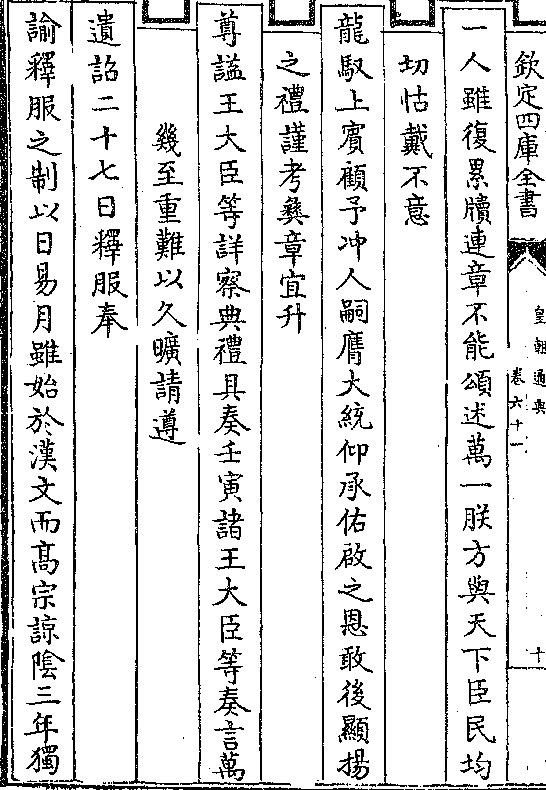 欽定四庫全書
皇朝通典
卷六十一
十
一人雖復累牘連章不能頌述萬一朕方與天下臣民均
切怙戴不意
龍馭上賓顧予冲人嗣膺大統仰承佑啟之恩敢後顯揚
之禮謹考彝章宜升
尊諡王大臣等詳察典禮具奏壬寅諸王大臣等奏言萬
幾至重難以久曠請遵
遺詔二十七日釋服奉
諭釋服之制以日易月雖始於漢文而高宗諒陰三年獨